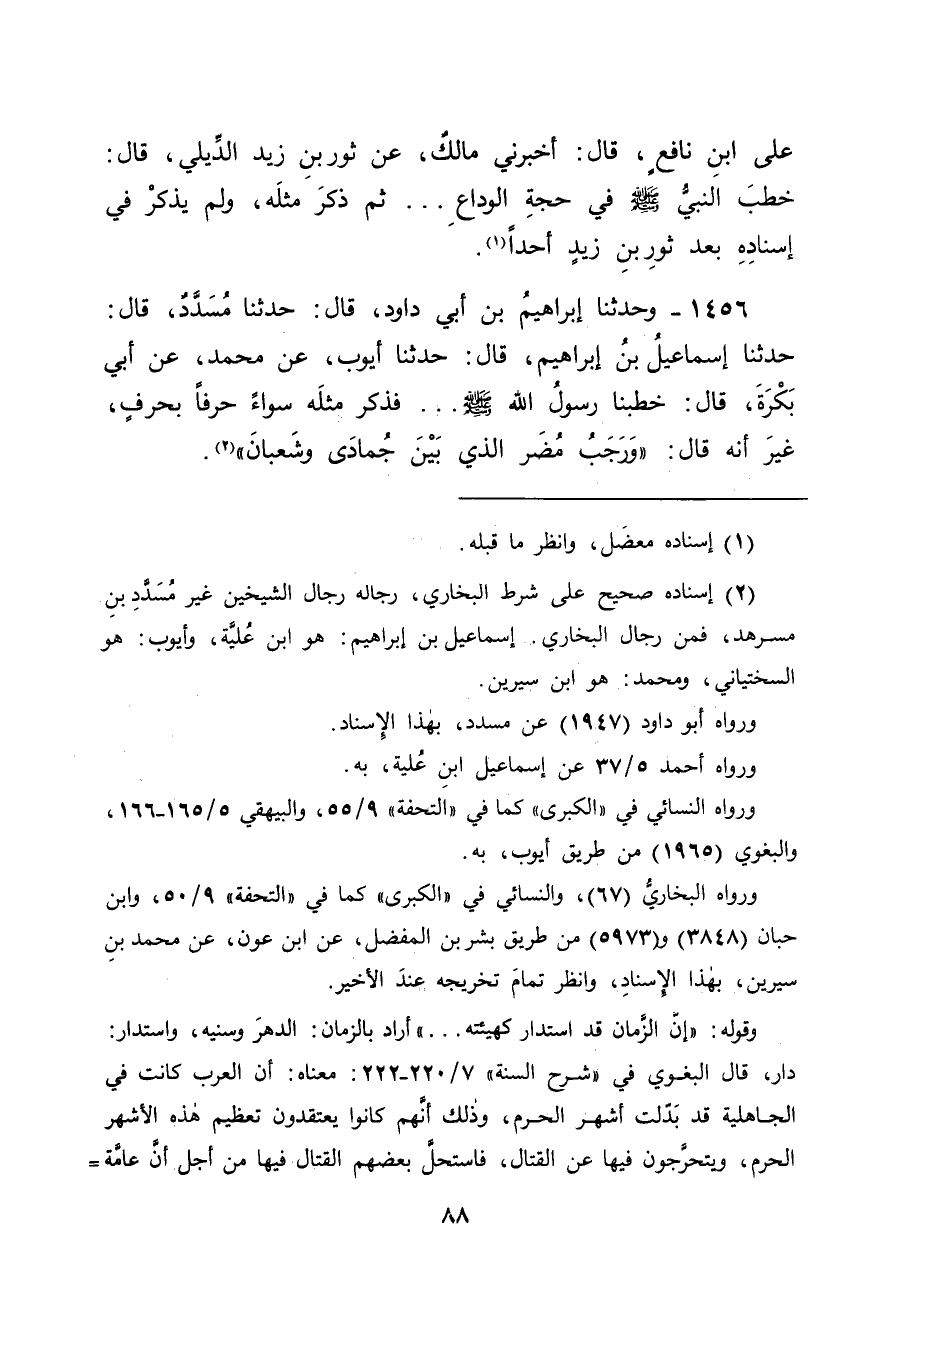 على ابنِ نافعٍ، قال: أخبرني مالكٌ، عن ثور بنِ زيد الدِّيلي، قال:
خطبَ النبيُّ ﷺ في حجةِ الوداعِ ... ثم ذكرَ مثلَه، ولم يذكرْ في
إسنادِهِ بعد ثورِ بنِ زيدٍ أحداً(١).
١٤٥٦ - وحدثنا إبراهيمُ بن أبي داود، قال: حدثنا مُسَدَّدٌ، قال:
حدثنا إسماعيلُ بنُ إبراهيم، قال: حدثنا أيوب، عن محمد، عن أبي
بَكْرَةَ، قال: خطبنا رسولُ الله ﷺ... فذكر مثلَه سواءً حرفاً بحرفٍ،
غيرَ أنه قال: «وَرَجَبُ مُضَر الذي بَيْنَ جُمادَى وشَعبانَ»(٢).
(١) إسناده معضَل، وانظر ما قبله.
(٢) إسناده صحيح على شرط البخاري، رجاله رجال الشيخين غير مُسَدَّدِ بنِ
مسرهد، فمن رجال البخاري. إسماعيل بن إبراهيم: هو ابن عُليَّة، وأيوب: هو
السختياني، ومحمد: هو ابن سيرين.
ورواه أبو داود (١٩٤٧) عن مسدد، بهٰذا الإِسناد.
ورواه أحمد ٣٧/٥ عن إسماعيل ابنِ عُلية، به.
ورواه النسائي في «الكبرى» كما في «التحفة» ٥٥/٩، والبيهقي ١٦٥/٥-١٦٦،
والبغوي (١٩٦٥) من طريق أيوب، به.
ورواه البخاريُّ (٦٧)، والنسائي في «الكبرى» كما في «التحفة» ٥٠/٩، وابن
حبان (٣٨٤٨) و(٥٩٧٣) من طريق بشر بن المفضل، عن ابن عون، عن محمد بنِ
سيرين، بهٰذا الإِسنادِ، وانظر تمامَ تخريجه عندَ الأخير.
وقوله: «إنَّ الزَّمان قد استدار كهيئته...» أراد بالزمان: الدهرَ وسنيه، واستدار:
دار، قال البغوي في «شرح السنة» ٢٢٠/٧-٢٢٢: معناه: أن العرب كانت في
الجاهلية قد بَدّلت أشهر الحرم، وذٰلك أنَّهم كانوا يعتقدون تعظيم هٰذه الأشهر
الحرم، ويتحرَّجون فيها عن القتال، فاستحلَّ بعضهم القتال فيها من أجل أنَّ عامَّة =
٨٨